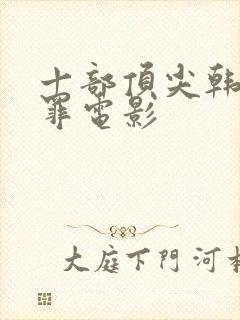 十部頂尖韩
罪電影
大庭下門河